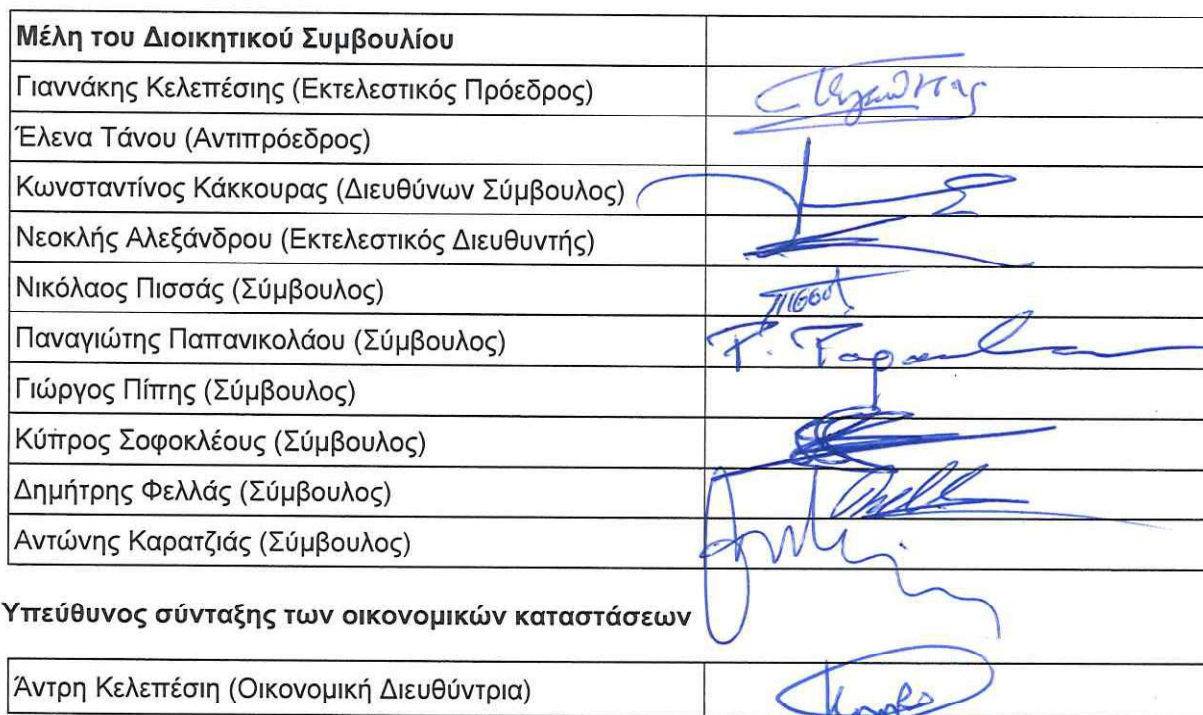 Μέλη του Διοικητικού Συμβουλίου
Γιαννάκης Κελεπέσιης (Εκτελεστικός Πρόεδρος)
Έλενα Τάνου (Αντιπρόεδρος)
Κωνσταντίνος Κάκκουρας (Διευθύνων Σύμβουλος)
Νεοκλής Αλεξάνδρου (Εκτελεστικός Διευθυντής)
Νικόλαος Πισσάς (Σύμβουλος)
Παναγιώτης Παπανικολάου (Σύμβουλος)
Γιώργος Πίπης (Σύμβουλος)
Κύπρος Σοφοκλέους (Σύμβουλος)
Δημήτρης Φελλάς (Σύμβουλος)
Αντώνης Καρατζιάς (Σύμβουλος)
Υπεύθυνος σύνταξης των οικονομικών καταστάσεων
Άντρη Κελεπέσιη (Οικονομική Διευθύντρια)